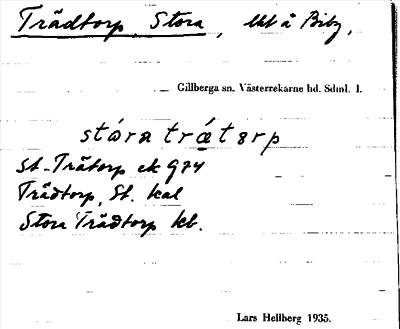 Trädtorp, Stora, lht å Biby,
Gillberga sn. Västerrekarne hd. Sdml. l.
stára trǻtårp
St. Trätorp ek G74
Trädtorp, St. kal
Stora Trädtorp kb.
Lars Hellberg 1935.